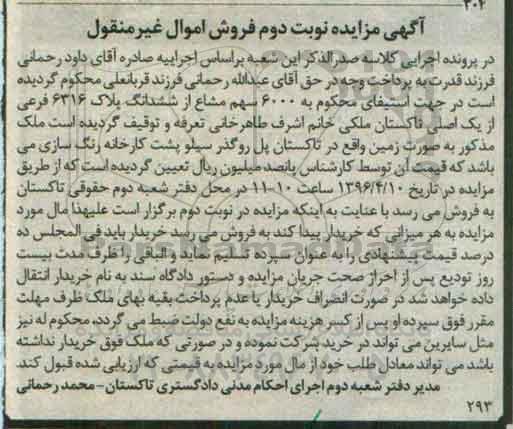 ۳۰۲
آگهی مزایده نوبت دوم فروش اموال غیرمنقول
در پرونده اجرایی کلاسه صدرالذکر این شعبه براساس اجراییه صادره آقای داود رحمانی
فرزند قدرت به پرداخت وجه در حق آقای عبدالله رحمانی فرزند قربانعلی محکوم گردیده
است در جهت استیفای محکوم به ۶۰۰۰ سهم مشاع از ششدانگ پلاک ۶۳۱۶ فرعی
از یک اصلی تاکستان ملکی خانم اشرف طاهرخانی تعرفه و توقیف گردیده است ملک
مذکور به صورت زمین واقع در تاکستان پل روگذر سیلو پشت کارخانه رنگ سازی می
باشد که قیمت آن توسط کارشناس پانصد میلیون ریال تعیین گردیده است که از طریق
مزایده در تاریخ ۱۳۹۶/۴/۱۰ ساعت ۱۰-۱۱ در محل دفتر شعبه دوم حقوقی تاکستان
به فروش می رسد با عنایت به اینکه مزایده در نوبت دوم برگزار است علیهذا مال مورد
مزایده به هر میزانی که خریدار پیدا کند به فروش می رسد خریدار باید فی المجلس ده
درصد قیمت پیشنهادی را به عنوان سپرده تسلیم نماید و الباقی را ظرف مدت بیست
روز تودیع پس از احراز صحت جریان مزایده و دستور دادگاه سند به نام خریدار انتقال
داده خواهد شد در صورت انصراف خریدار یا عدم پرداخت بقیه بهای ملک ظرف مهلت
مقرر فوق سپرده او پس از کسر هزینه مزایده به نفع دولت ضبط می گردد، محکوم له نیز
مثل سایرین می تواند در خرید شرکت نموده و در صورتی که ملک فوق خریدار نداشته
باشد می تواند معادل طلب خود از مال مورد مزایده به قیمتی که ارزیابی شده قبول کند.
مدیر دفتر شعبه دوم اجرای احکام مدنی دادگستری تاکستان-محمد رحمانی
۲۹۳